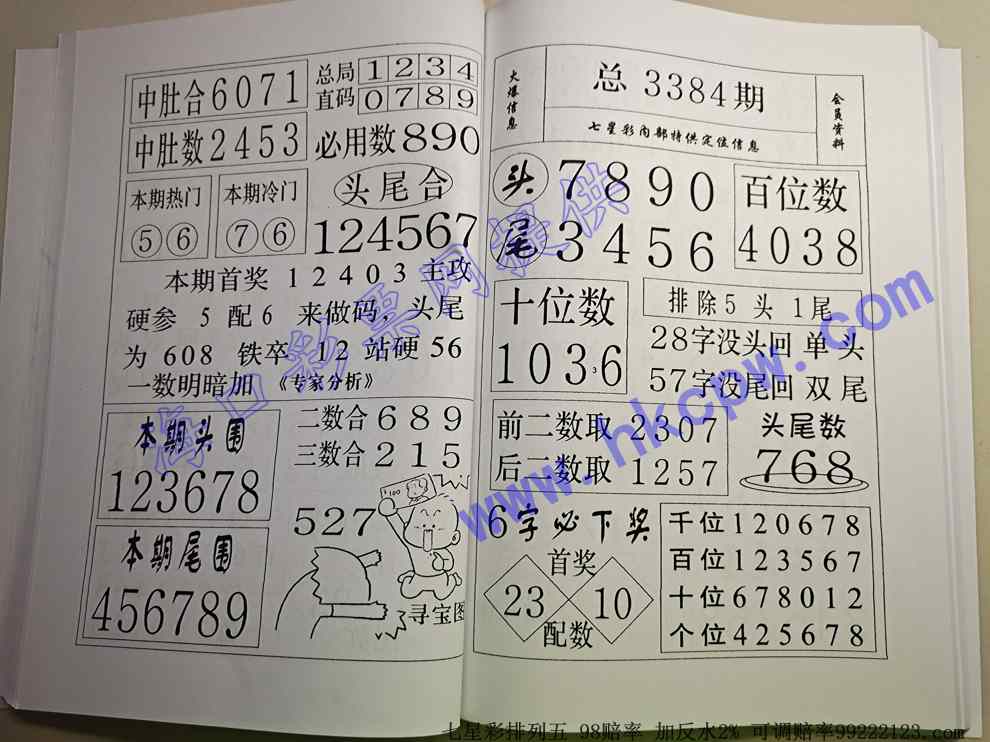 中肚合6071
总局1234
直码0789
中肚数2453
必用数890
本期热门
⑤⑥
本期冷门
⑦⑥
头尾合
124567
本期首奖 12403 主攻
硬参 5 配6 来做码，头尾
为 608 铁卒 12 站硬 56
一数明暗加 《专家分析》
本期头围
123678
二数合 689
三数合 215
527
本期尾围
456789
100
寻宝图
火爆信息
总 3384期
七星彩内部特供定位信息
会员资料
头 7890
尾 3456
百位数
4038
十位数
1036
3
排除5 头 1尾
28字没头回 单 头
57字没尾回 双 尾
前二数取 2307
后二数取 1257
头尾数
768
6字必下奖
首奖
23 10
配数
千位120678
百位123567
十位678012
个位425678
海口彩票网提供
www.hkcpw.com
七星彩排列五 98赔率 加反水2% 可调赔率99222123.com